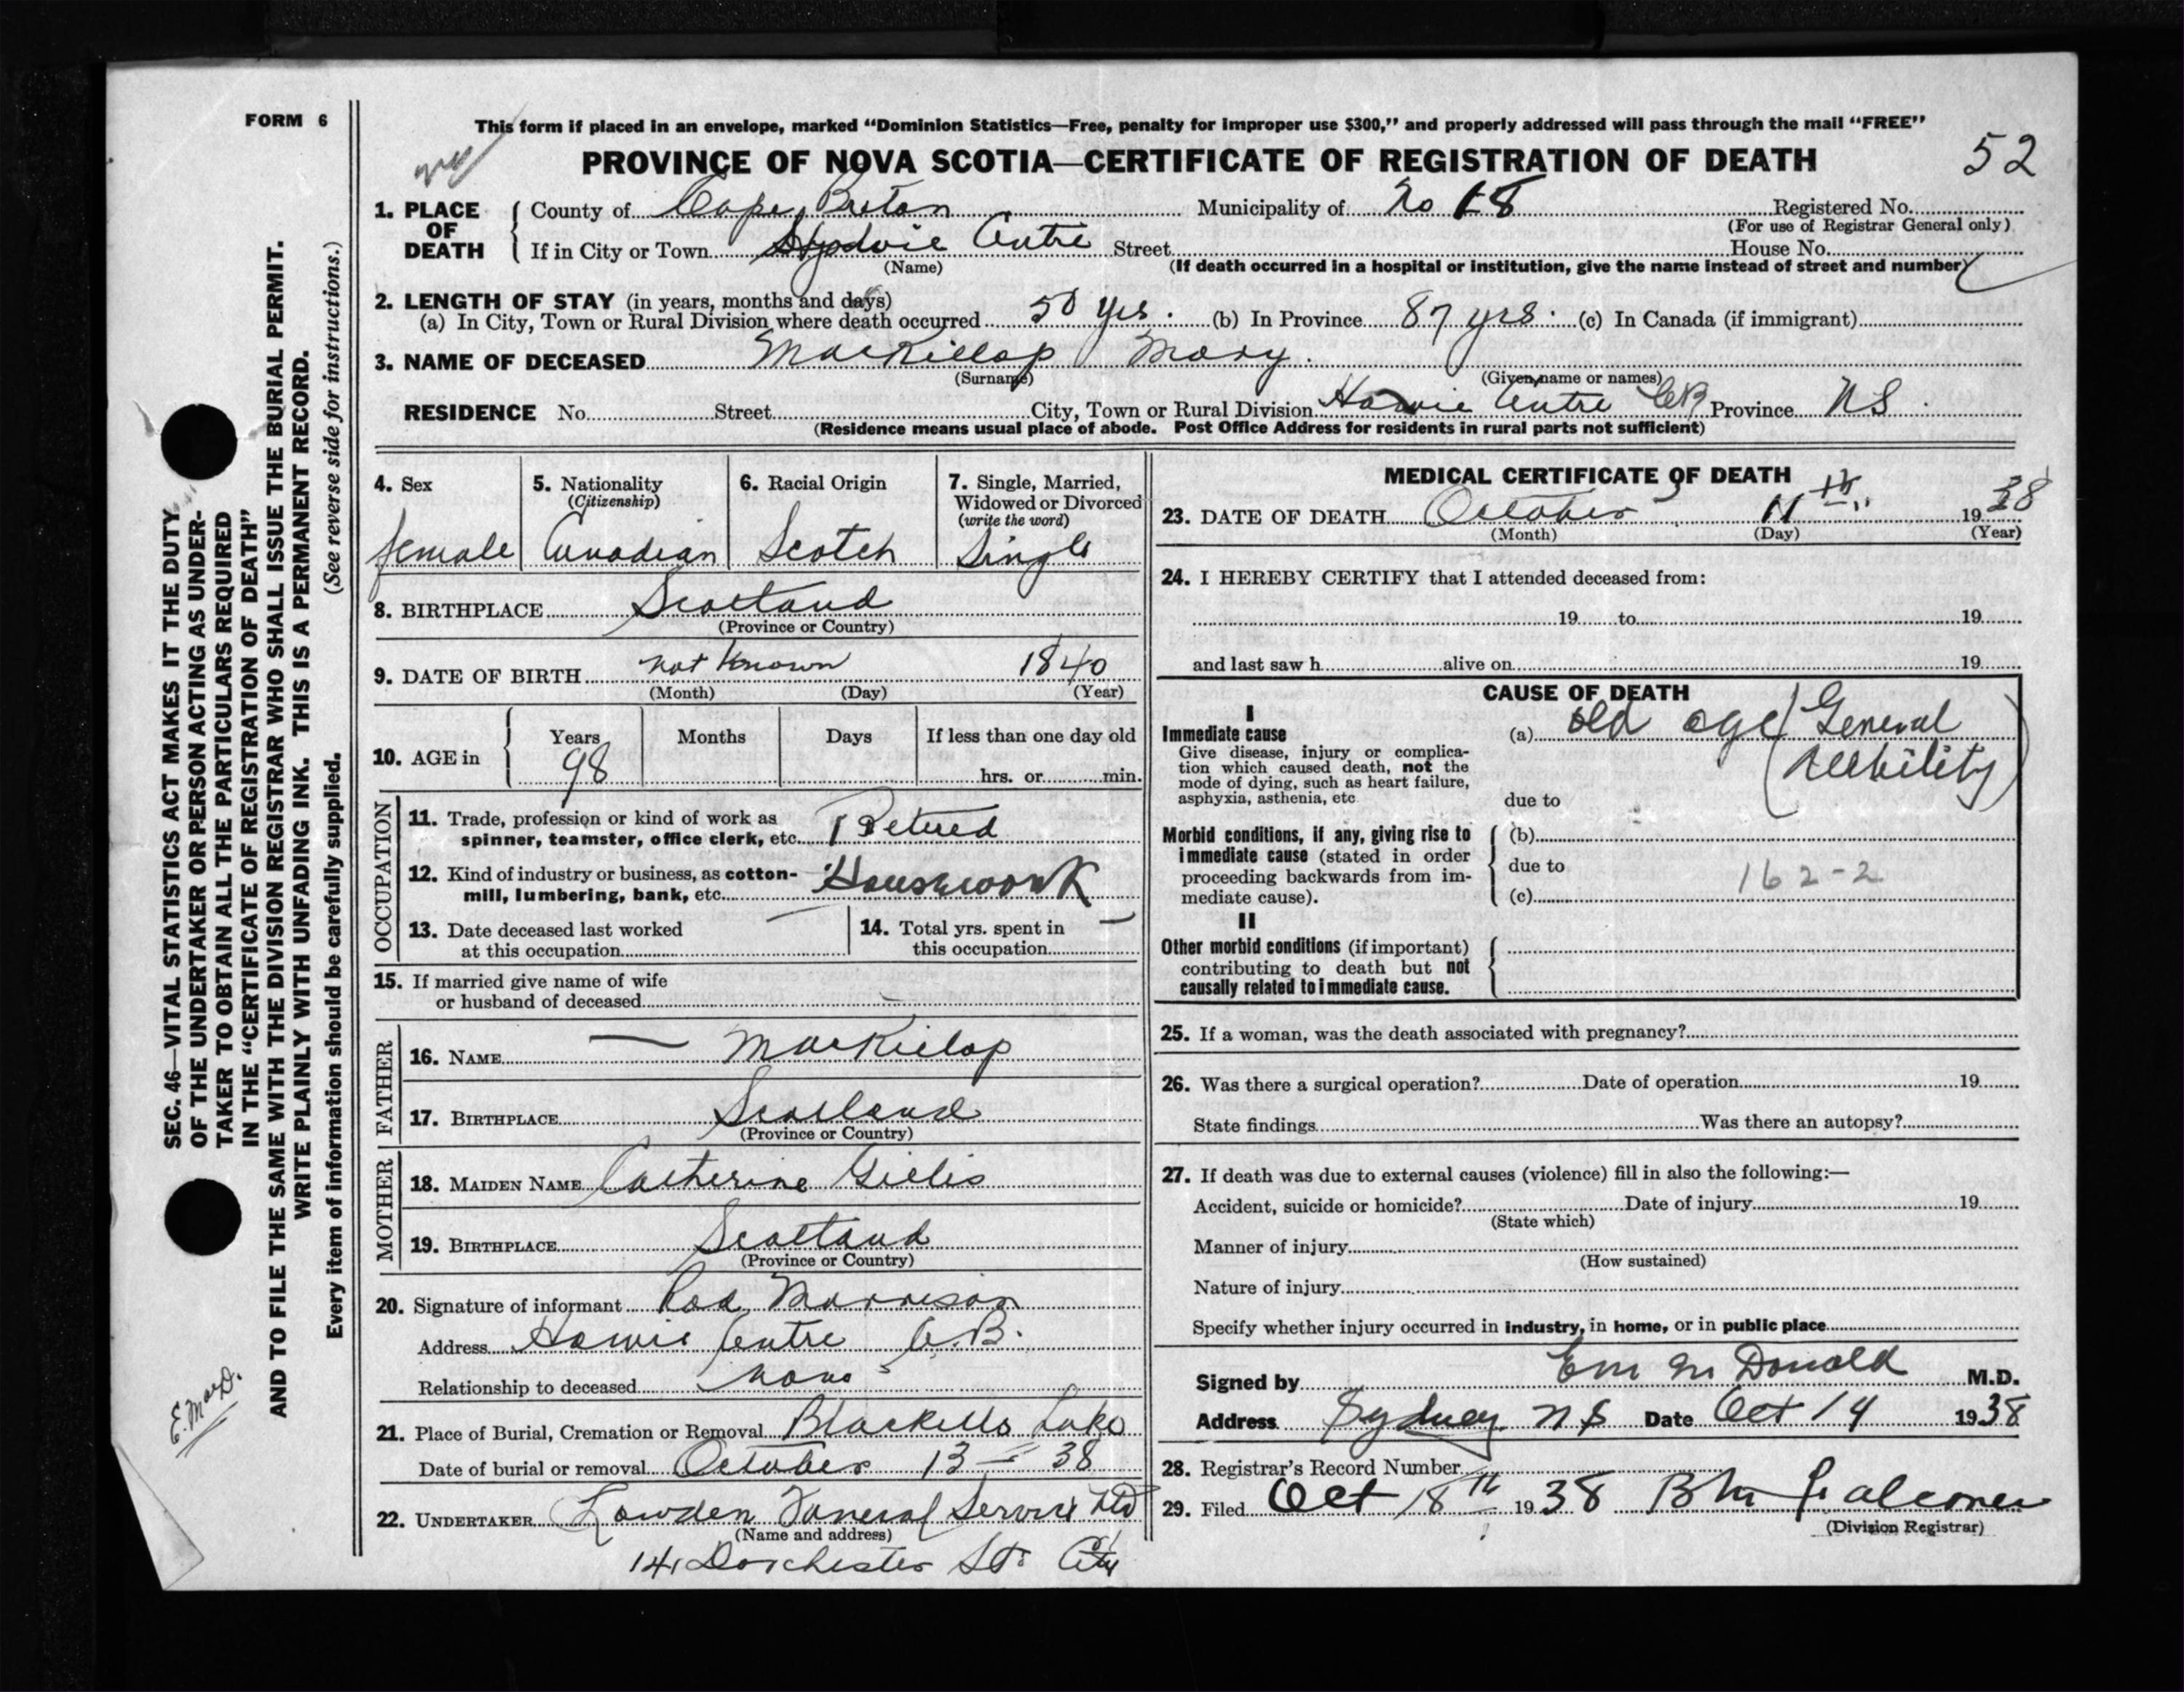 FORM 6
This form if placed in an envelope, marked “Dominion Statistics—Free, penalty for improper use $300,” and properly addressed will pass through the mail “FREE”
PROVINCE OF NOVA SCOTIA—CERTIFICATE OF REGISTRATION OF DEATH
52
1. PLACE OF DEATH
County of Cape Breton Municipality of No 18 Registered No.
(For use of Registrar General only)
If in City or Town Centre Street House No.
(Name) (If death occurred in a hospital or institution, give the name instead of street and number)
2. LENGTH OF STAY (in years, months and days)
(a) In City, Town or Rural Division where death occurred 50 yrs. (b) In Province 87 yrs. (c) In Canada (if immigrant)
3. NAME OF DECEASED MacKillop Mary.
(Surname) (Given name or names)
RESIDENCE No. Street City, Town or Rural Division Howie Centre CB Province NS.
(Residence means usual place of abode. Post Office Address for residents in rural parts not sufficient)
4. Sex
female
5. Nationality
(Citizenship)
Canadian
6. Racial Origin
Scotch
7. Single, Married,
Widowed or Divorced
(write the word)
Single
8. BIRTHPLACE Scotland
(Province or Country)
9. DATE OF BIRTH not known 1840
(Month) (Day) (Year)
10. AGE in
Years Months Days If less than one day old
98 hrs. or min.
OCCUPATION
11. Trade, profession or kind of work as
spinner, teamster, office clerk, etc. Retired
12. Kind of industry or business, as cotton-
mill, lumbering, bank, etc. Housework
13. Date deceased last worked
at this occupation —
14. Total yrs. spent in
this occupation —
15. If married give name of wife
or husband of deceased —
FATHER
16. NAME — MacKillop
17. BIRTHPLACE Scotland
(Province or Country)
MOTHER
18. MAIDEN NAME Catherine Gillis
19. BIRTHPLACE Scotland
(Province or Country)
20. Signature of informant Rod Morrison
Address Howie Centre C.B.
Relationship to deceased None
21. Place of Burial, Cremation or Removal Blacketts Lake
Date of burial or removal October 13 — 38
22. UNDERTAKER Lowden Funeral Service Ltd
(Name and address)
141 Dorchester St. City
MEDICAL CERTIFICATE OF DEATH
23. DATE OF DEATH October 11th 1938
(Month) (Day) (Year)
24. I HEREBY CERTIFY that I attended deceased from:
19 to 19
and last saw h alive on 19
CAUSE OF DEATH
I
Immediate cause
Give disease, injury or complica-
tion which caused death, not the
mode of dying, such as heart failure,
asphyxia, asthenia, etc
(a) old age (General
Debility)
due to
Morbid conditions, if any, giving rise to
immediate cause (stated in order
proceeding backwards from im-
mediate cause).
(b)
due to
162-2
(c)
II
Other morbid conditions (if important)
contributing to death but not
causally related to immediate cause.
25. If a woman, was the death associated with pregnancy?
26. Was there a surgical operation? Date of operation 19
State findings Was there an autopsy?
27. If death was due to external causes (violence) fill in also the following:—
Accident, suicide or homicide? Date of injury 19
(State which)
Manner of injury
(How sustained)
Nature of injury
Specify whether injury occurred in industry, in home, or in public place
Signed by McDonald M.D.
Address Sydney NS Date Oct 14 1938
28. Registrar's Record Number
29. Filed Oct 18th 1938 Falconer
(Division Registrar)
SEC. 46—VITAL STATISTICS ACT MAKES IT THE DUTY
OF THE UNDERTAKER OR PERSON ACTING AS UNDER-
TAKER TO OBTAIN ALL THE PARTICULARS REQUIRED
IN THE “CERTIFICATE OF REGISTRATION OF DEATH”
AND TO FILE THE SAME WITH THE DIVISION REGISTRAR WHO SHALL ISSUE THE BURIAL PERMIT.
WRITE PLAINLY WITH UNFADING INK. THIS IS A PERMANENT RECORD.
Every item of information should be carefully supplied. (See reverse side for instructions.)
E. MacD.